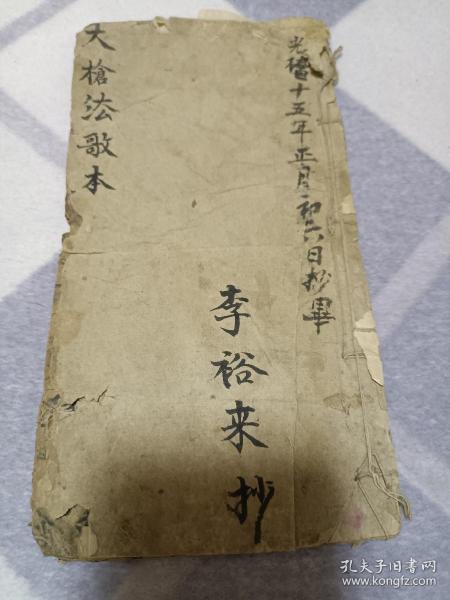 光緒十五年正月初六日抄畢
李裕来抄
大槍法歌本
孔夫子旧书网
www.kongfz.com